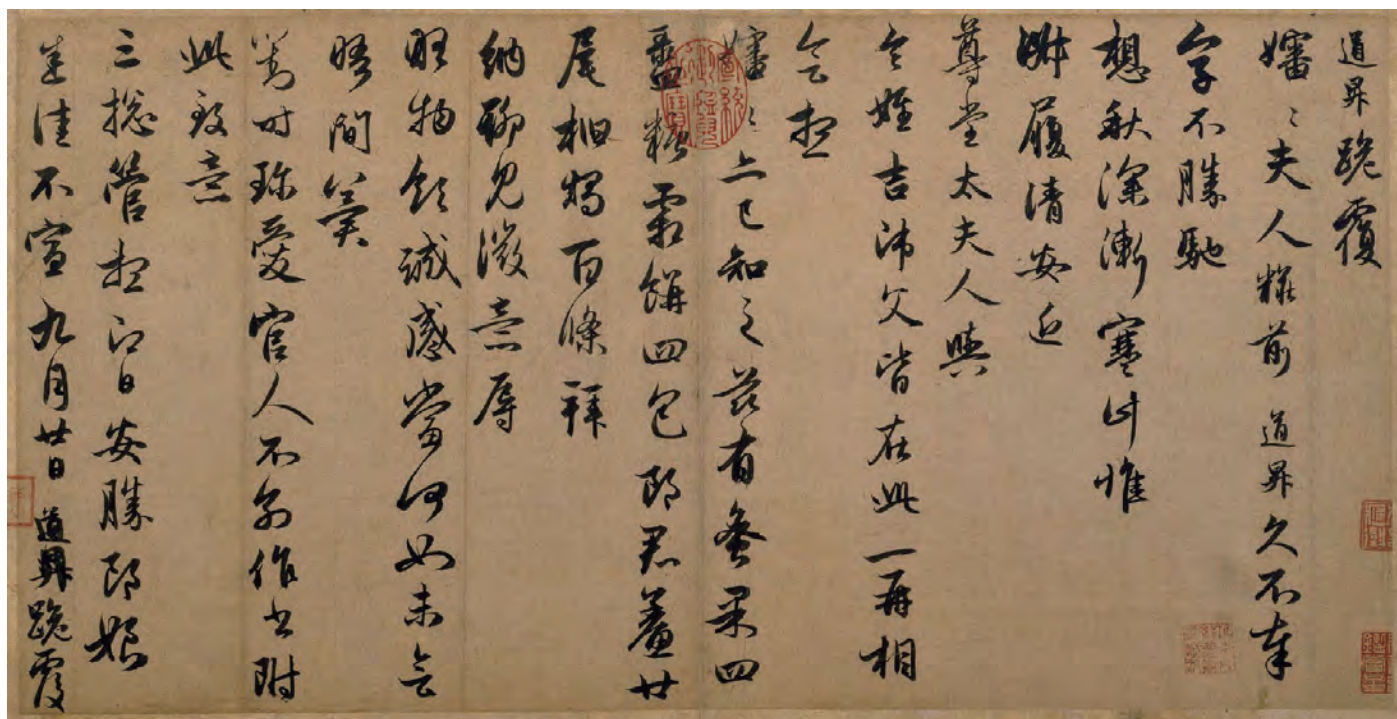 道昇跪覆
嬸〻夫人糚前 道昇久不奉
字不勝馳
想秋深漸寒計惟
淑履清安近
尊堂太夫人與
令姪吉師父皆在此一再相
會想
嬸〻上已知之茲有蜜果四
盝糖霜餅四包郎君鯗廿
尾桕燭百條拜
納聊見微意辱
略物領誠感當何如未會
晤間冀
對時珍愛官人不別作書附
此致意
三總管想即日安勝郎娘
悉佳不宣 九月廿日 道昇跪覆